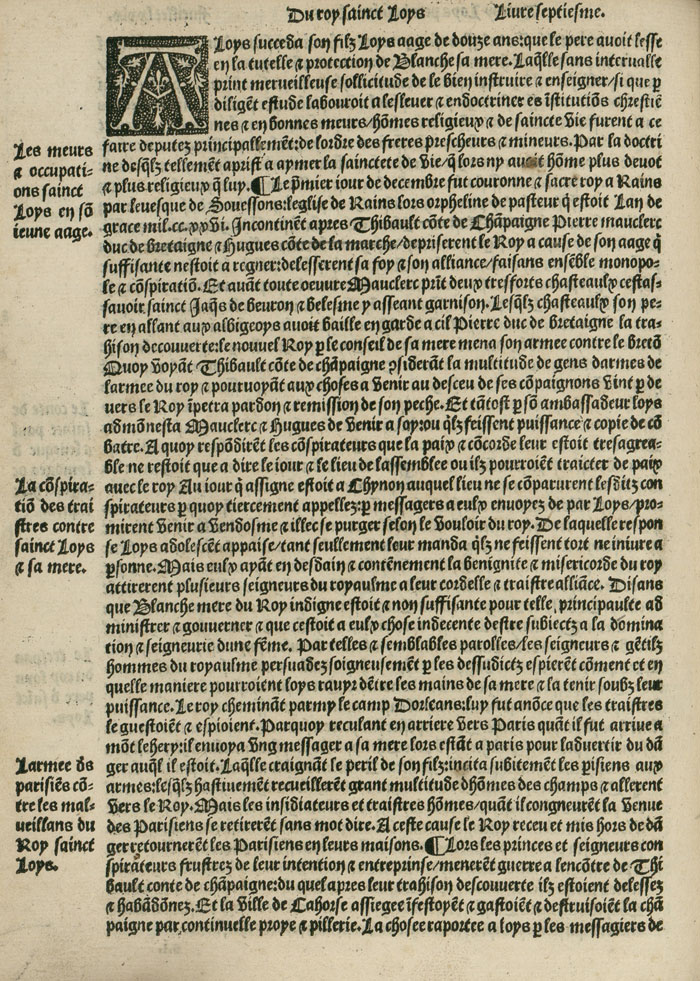 Du roy sainct Loys Liure septiesme.
A Loys succeda son filz Loys aage de douze ans: que le pere auoit lesse
en la tutelle & protection de Blanche sa mere. Laq̃lle sans interualle
print merueilleuse sollicitude de le bien instruire & enseigner/si que p̱
diligẽt estude labouroit a leslever & endoctriner es ĩstitutiõs chrestiẽ
nes & en bonnes meurs/hõmes religieux & de saincte vie furent a ce
faire deputez principallemẽt: de lordre des freres prescheurs & mineurs. Par la doctri
ne desq̃lz tellemẽt aprist a aymer la sainctete de vie/q̃ lors ny auoit hõme plus deuot
& plus religieux q̃ luy. ¶ Le p̃mier iour de decembre fut couronne & sacre roy a Rains
par leuesque de Souessons: leglise de Rains lors orpheline de pasteur q̃ estoit Lan de
grace mil.cc.xxvi. Incontinẽt apres Thibault cõte de Chãpaigne Pierre mauclerc
duc de bretaigne & Hugues cõte de la marche/depriserent le Roy a cause de son aage q̃
suffisante nestoit a regner: delesserent sa foy & son alliance/faisans ensẽble monopo-
le & cõspiratiõ. Et auãt toute oeuure Mauclerc prĩt deux tresforts chasteaulx cestas-
sauoir sainct Jaq̃s de beuron & belesme y asseant garnison. Lesq̃lz chasteaulx son pe-
re en allant aux albigeoys auoit baille en garde a cil Pierre duc de bretaigne la tra-
hison decouuerte: le nouuel Roy p̱ le conseil de sa mere mena son armee contre le bretõ
Quoy voyãt Thibault cõte de chãpaigne ꝯsiderãt la multitude de gens darmes de
larmee du roy & pouruoyãt aux choses a venir au desceu de ses cõpaignons vint p̱ de
uers le Roy ĩpetra pardon & remission de son peche. Et tãtost p̱ sõ ambassadeur loys
admõnesta Mauclerc & Hugues de venir a soy: ou q̃lz feissent puissance & copie de cõ
batre. A quoy respõdirẽt les cõspirateurs que la paix & cõcorde leur estoit tresagrea-
ble ne restoit que a dire le iour & le lieu de lassemblee ou ilz pourroiẽt traicter de paix
auec le roy Au iour q̃ assigne estoit a Chynon auquel lieu ne se cõparurent lesditz con
spirateurs p̱ quoy tiercement appellez: p̱ messagers a eulx enuoyez de par Loys/pro-
mirent venir a Vendosme & illec se purger selon le vouloir du roy. De laquelle respon
se Loys adolescẽt appaise/tant seullement leur manda q̃lz ne feissent tort ne iniure a
p̱sonne. Mais eulx ayãt en desdain & contẽnement la benignite & misericorde du roy
attirerent plusieurs seigneurs du royaulme a leur cordelle & traistre alliãce. Disans
que Blanche mere du Roy indigne estoit & non suffisante pour telle principaulte ad
ministrer & gouuerner & que cestoit a eulx chose indecente destre subiectz a la domina
tion & seigneurie dune fẽme. Par telles & semblables parolles/les seigneurs & gẽtilz
hommes du royaulme persuadez soigneusemẽt p̱ les dessudictz espierẽt cõment et en
quelle maniere pourroiẽt loys rauyr dẽtre les mains de sa mere & la tenir soubz leur
puissance. Le roy cheminãt parmy le camp Dorleans: luy fut anõce que les traistres
le guestoiẽt & espioient. Parquoy reculant en arriere vers Paris quãt il fut arriue a
mõt lehery: il enuoya vng messager a sa mere lors estãt a paris pour laduertir du dã
ger auq̃l il estoit. Laq̃lle craignãt le peril de son filz: incita subitemẽt les p̱isiens aux
armes: lesq̃lz hastiuemẽt recueillerẽt grant multitude dhõmes des champs & allerent
vers le Roy. Mais les insidiateurs et traistres hõmes/quãt il congneurẽt la venue
des Parisiens se retirerẽt sans mot dire. A ceste cause le Roy receu et mis hors de dã
ger retournerẽt les Parisiens en leurs maisons. ¶ Lors les princes et seigneurs con
spirateurs frustrez de leur intention & entreprinse/menerẽt guerre a lencõtre de Thi
bault conte de chãpaigne: du quel apres leur trahison descouuerte ilz estoient delessez
& habãdõnez. Et la ville de Cahorse assiegee ĩfestoyẽt & gastoiẽt & destruisoiẽt la chã
paigne par continuelle proye & pillerie. La chosee raportee a loys p̱ les messagiers de
Les meurs
& occupati-
ons sainct
Loys en sõ
ieune aage.
La cõspira-
tiõ des trai
stres contre
sainct Loys
& sa mere.
Larmee ds̃
parisiẽs cõ-
tre les mal-
ueillans du
Roy sainct
Loys.